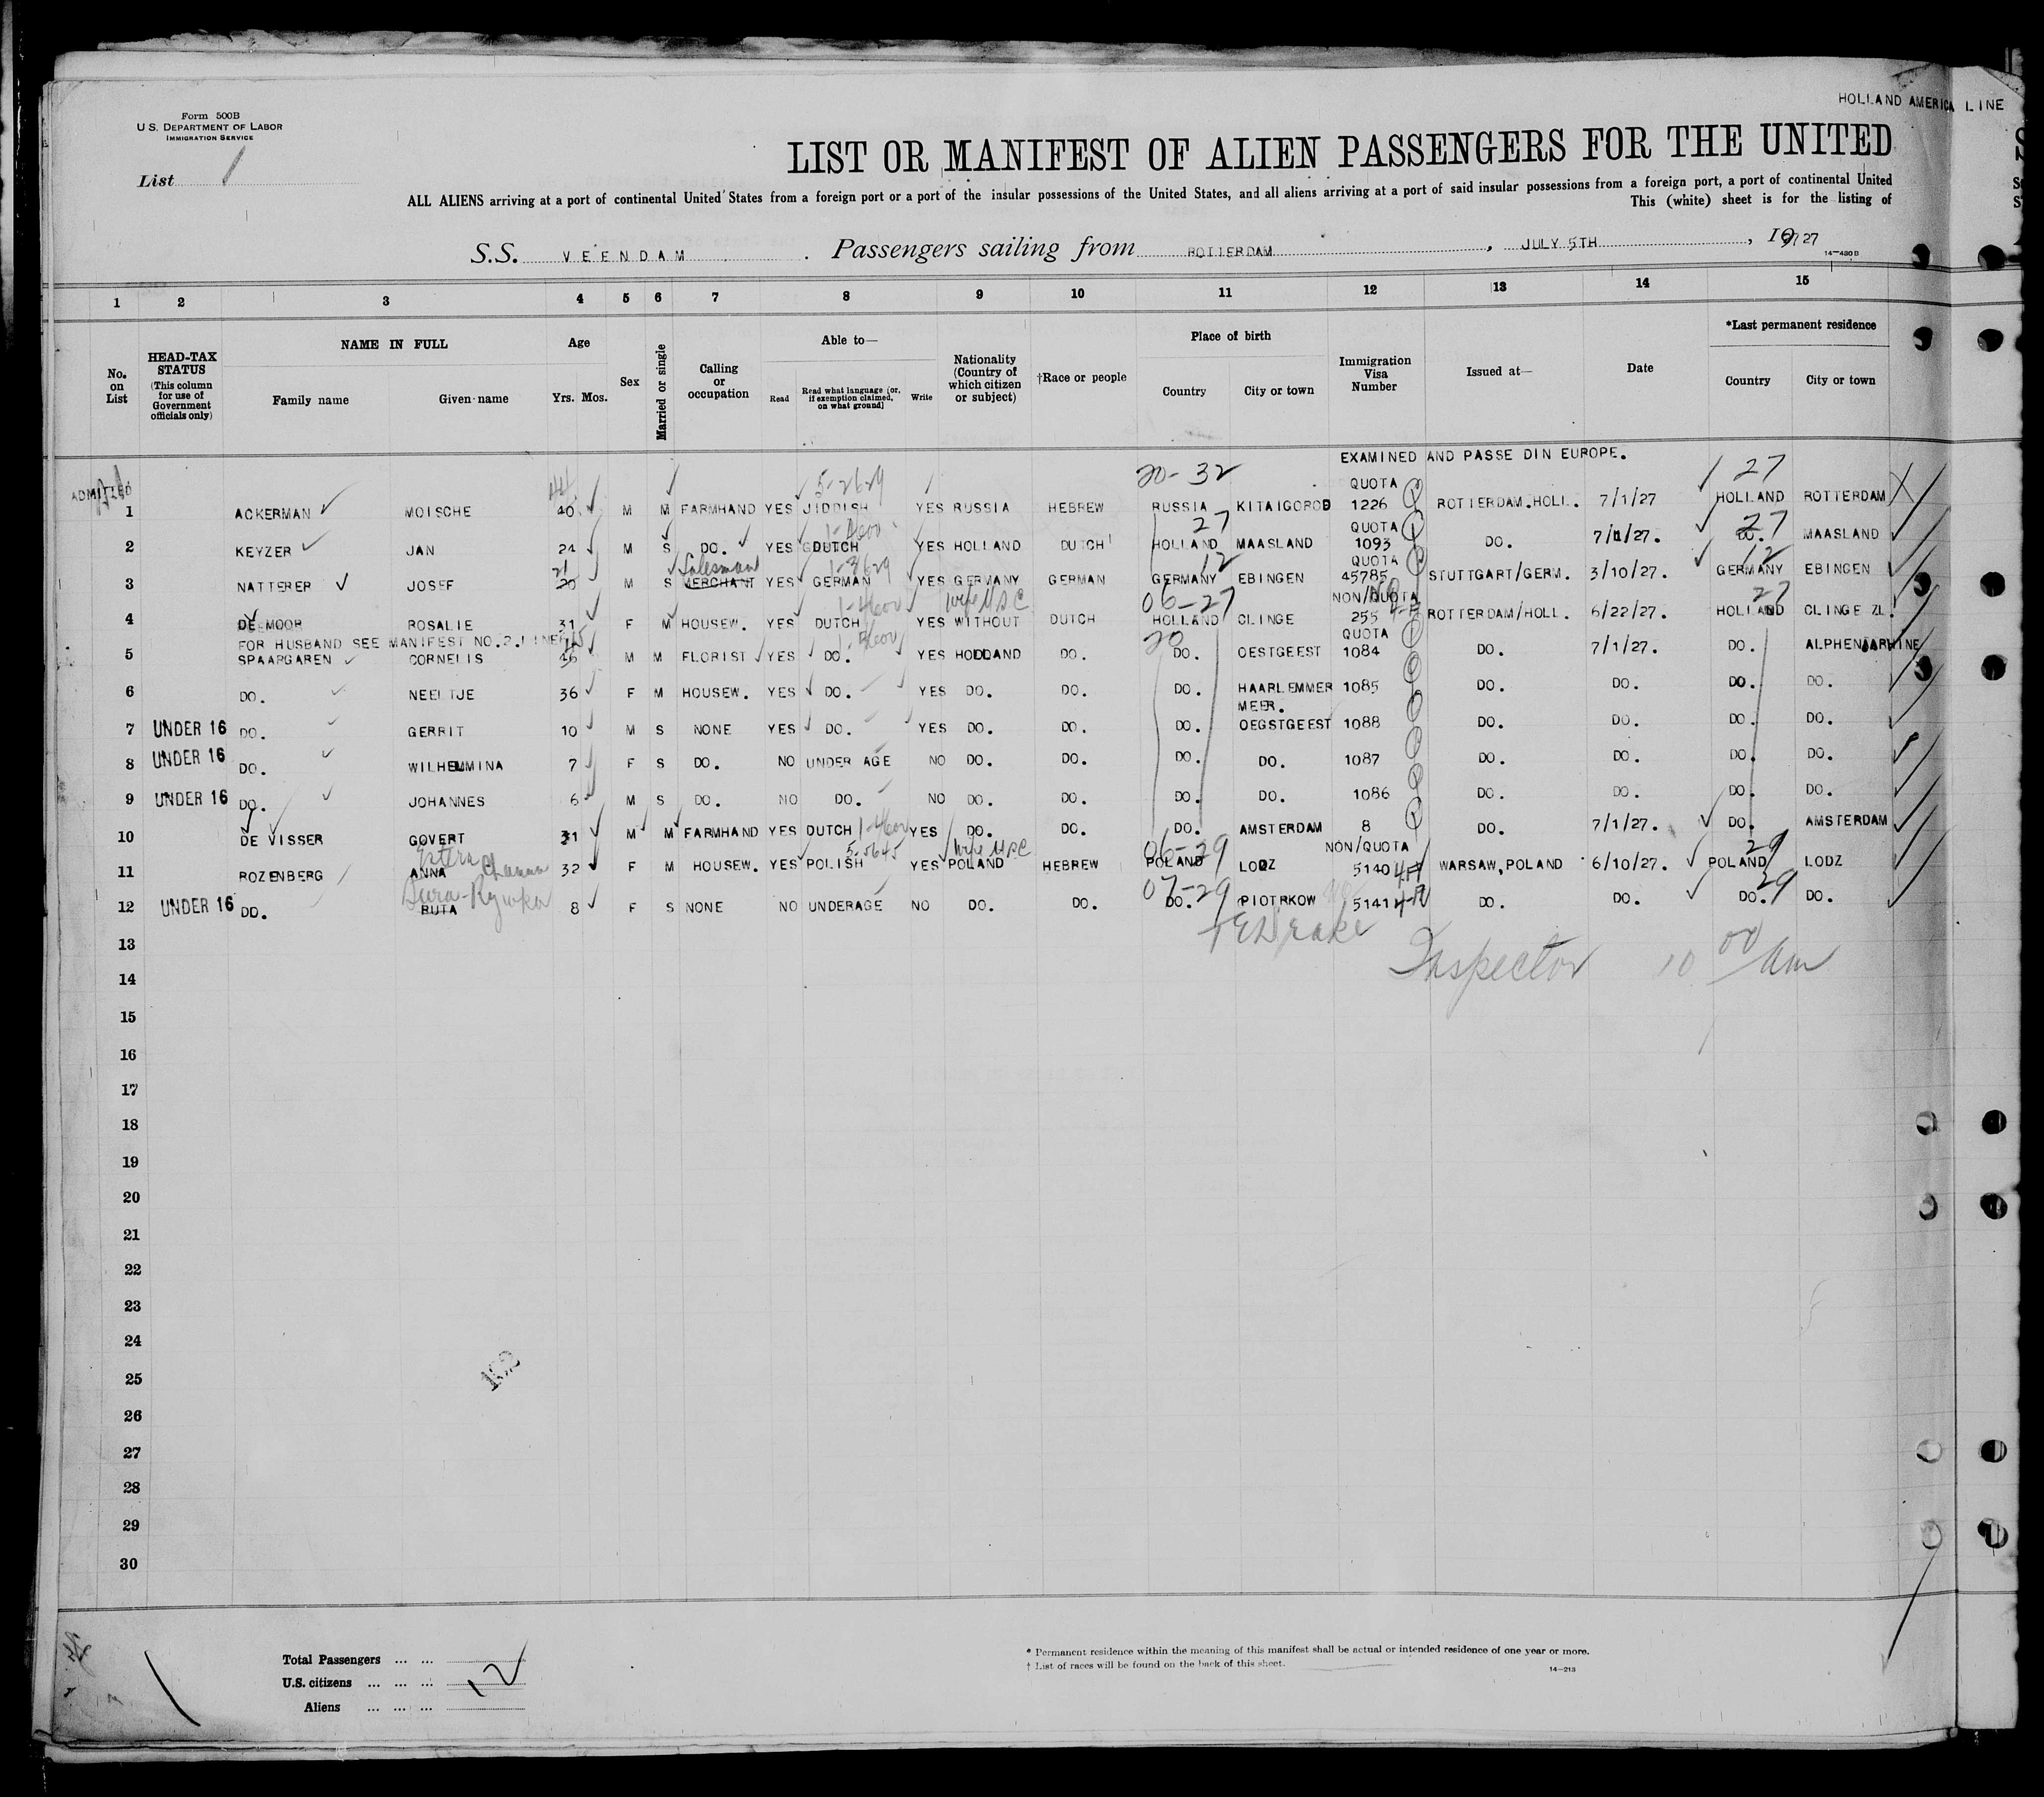 HOLLAND AMERICA LINE
Form 500B
U.S. DEPARTMENT OF LABOR
IMMIGRATION SERVICE
List 1
LIST OR MANIFEST OF ALIEN PASSENGERS FOR THE UNITED
ALL ALIENS arriving at a port of continental United States from a foreign port or a port of the insular possessions of the United States, and all aliens arriving at a port of said insular possessions from a foreign port, a port of continental United
This (white) sheet is for the listing of
S.S. VEENDAM. Passengers sailing from ROTTERDAM, JULY 5TH, 1927
14—480 B
1 2 3 4 5 6 7 8 9 10 11 12 13 14 15
No. on List
HEAD-TAX STATUS (This column for use of Government officials only)
NAME IN FULL Family name Given name
Age Yrs. Mos.
Sex
Married or single
Calling or occupation
Able to— Read Read what language [or, if exemption claimed, on what ground] Write
Nationality (Country of which citizen or subject)
†Race or people
Place of birth Country City or town
Immigration Visa Number
Issued at—
Date
*Last permanent residence Country City or town
EXAMINED AND PASSE DIN EUROPE.
44 5-2629 20-32 QUOTA 27
ADMITTED
1 ACKERMAN MOISCHE 40 M M FARMHAND YES JIDDISH YES RUSSIA HEBREW RUSSIA KITAIGOROD 1226 ROTTERDAM.HOLL. 7/1/27 HOLLAND ROTTERDAM
27 QUOTA 27
2 KEYZER JAN 24 M S DO. YES DUTCH YES HOLLAND DUTCH HOLLAND MAASLAND 1093 DO. 7/1/27. DO. MAASLAND
21 Salesman 1-3629 12 QUOTA 12
3 NATTERER JOSEF 20 M S MERCHANT YES GERMAN YES GERMANY GERMAN GERMANY EBINGEN 45785 STUTTGART/GERM. 3/10/27. GERMANY EBINGEN
wife USC 06-27 NON/QUOTA 27
4 DE MOOR ROSALIE 31 F M HOUSEW. YES DUTCH YES WITHOUT DUTCH HOLLAND CLINGE 255 ROTTERDAM/HOLL. 6/22/27. HOLLAND CLINGE ZL.
FOR HUSBAND SEE MANIFEST NO.2.LINE 15 20 QUOTA
5 SPAARGAREN CORNELIS 46 M M FLORIST YES DO. YES HOLLAND DO. DO. OESTGEEST 1084 DO. 7/1/27. DO. ALPHENAARHINE
6 DO. NEELTJE 36 F M HOUSEW. YES DO. YES DO. DO. DO. HAARLEMMER MEER. 1085 DO. DO. DO. DO.
7 UNDER 16 DO. GERRIT 10 M S NONE YES DO. YES DO. DO. DO. OEGSTGEEST 1088 DO. DO. DO. DO.
8 UNDER 16 DO. WILHELMINA 7 F S DO. NO UNDER AGE NO DO. DO. DO. DO. 1087 DO. DO. DO. DO.
9 UNDER 16 DO. JOHANNES 6 M S DO. NO DO. NO DO. DO. DO. DO. 1086 DO. DO. DO. DO.
10 DE VISSER GOVERT 31 M M FARMHAND YES DUTCH YES DO. DO. DO. AMSTERDAM 8 DO. 7/1/27. DO. AMSTERDAM
Estera Channa 5-5645 wife USC 06-29 NON/QUOTA 29
11 ROZENBERG ANNA 32 F M HOUSEW. YES POLISH YES POLAND HEBREW POLAND LODZ 5140 WARSAW,POLAND 6/10/27. POLAND LODZ
Sura-Rywka 07-29 29
12 UNDER 16 DO. RUTA 8 F S NONE NO UNDERAGE NO DO. DO. DO. PIOTRKOW 5141 DO. DO. DO. DO.
Drake
Inspector 10 00/am
13
14
15
16
17
18
19
20
21
22
23
24
25
26
27
28
29
30
Total Passengers ... ...
U.S. citizens ... ... ... 12
Aliens ... ... ...
* Permanent residence within the meaning of this manifest shall be actual or intended residence of one year or more.
† List of races will be found on the back of this sheet.
14—213